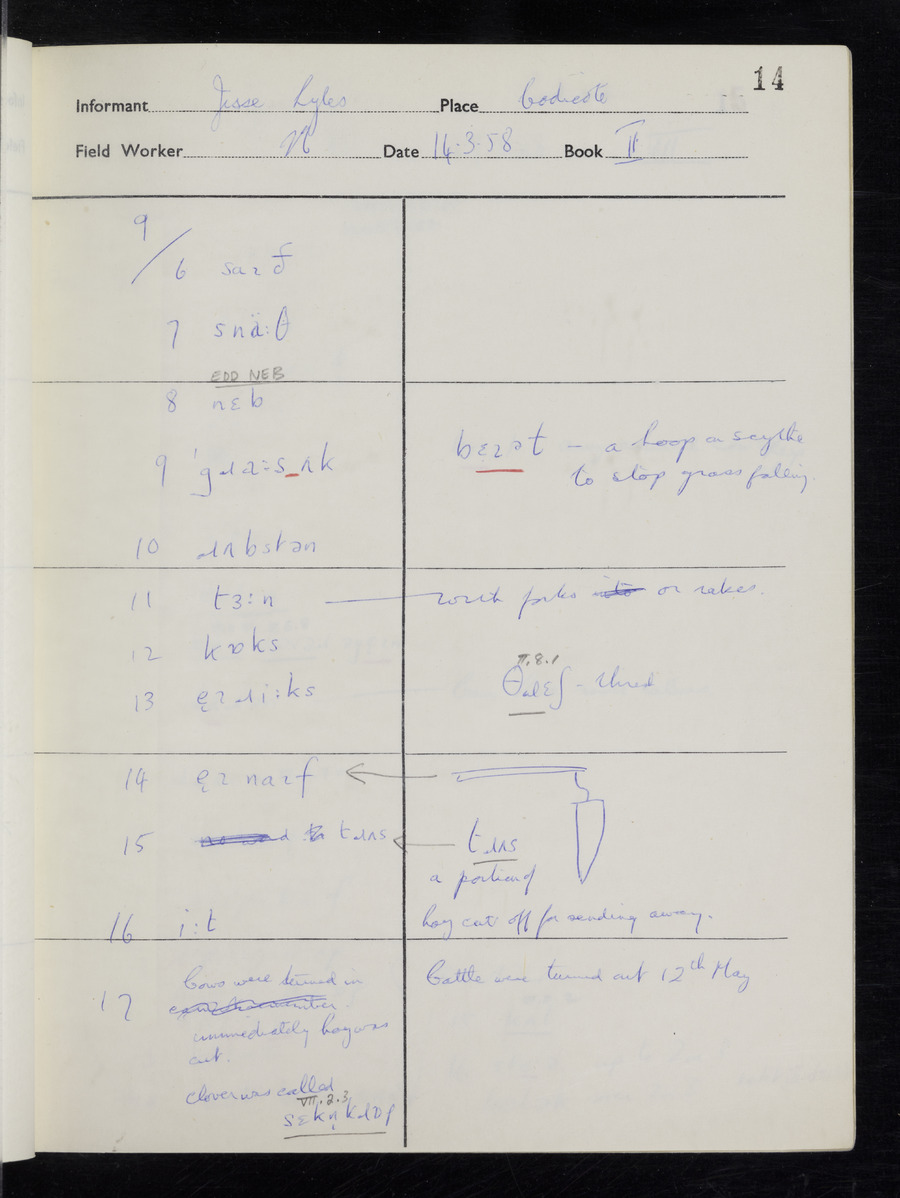 14
Informant Jesse Lyles Place Codicote
Field Worker N Date 14.3.58 Book II
9/
6
7 snä:θ
EDD NEB
8 nɛb
9
bɛɹət – a hoop on scythe
to stop grass falling.
10 ɹʌbstən
11 tɜ:n — with forks or rakes.
12 kɒks
13
II.8.1
θɹɛʃ –
14
15 tɹʌs
tɹʌs
a portion of
16 i:t hay cut off for sending away.
17 Cows were turned in
immediately hay was
cut.
Cattle were turned out 12th May
clover was called
VII.2.3
sɛkn̩ kɹɒp